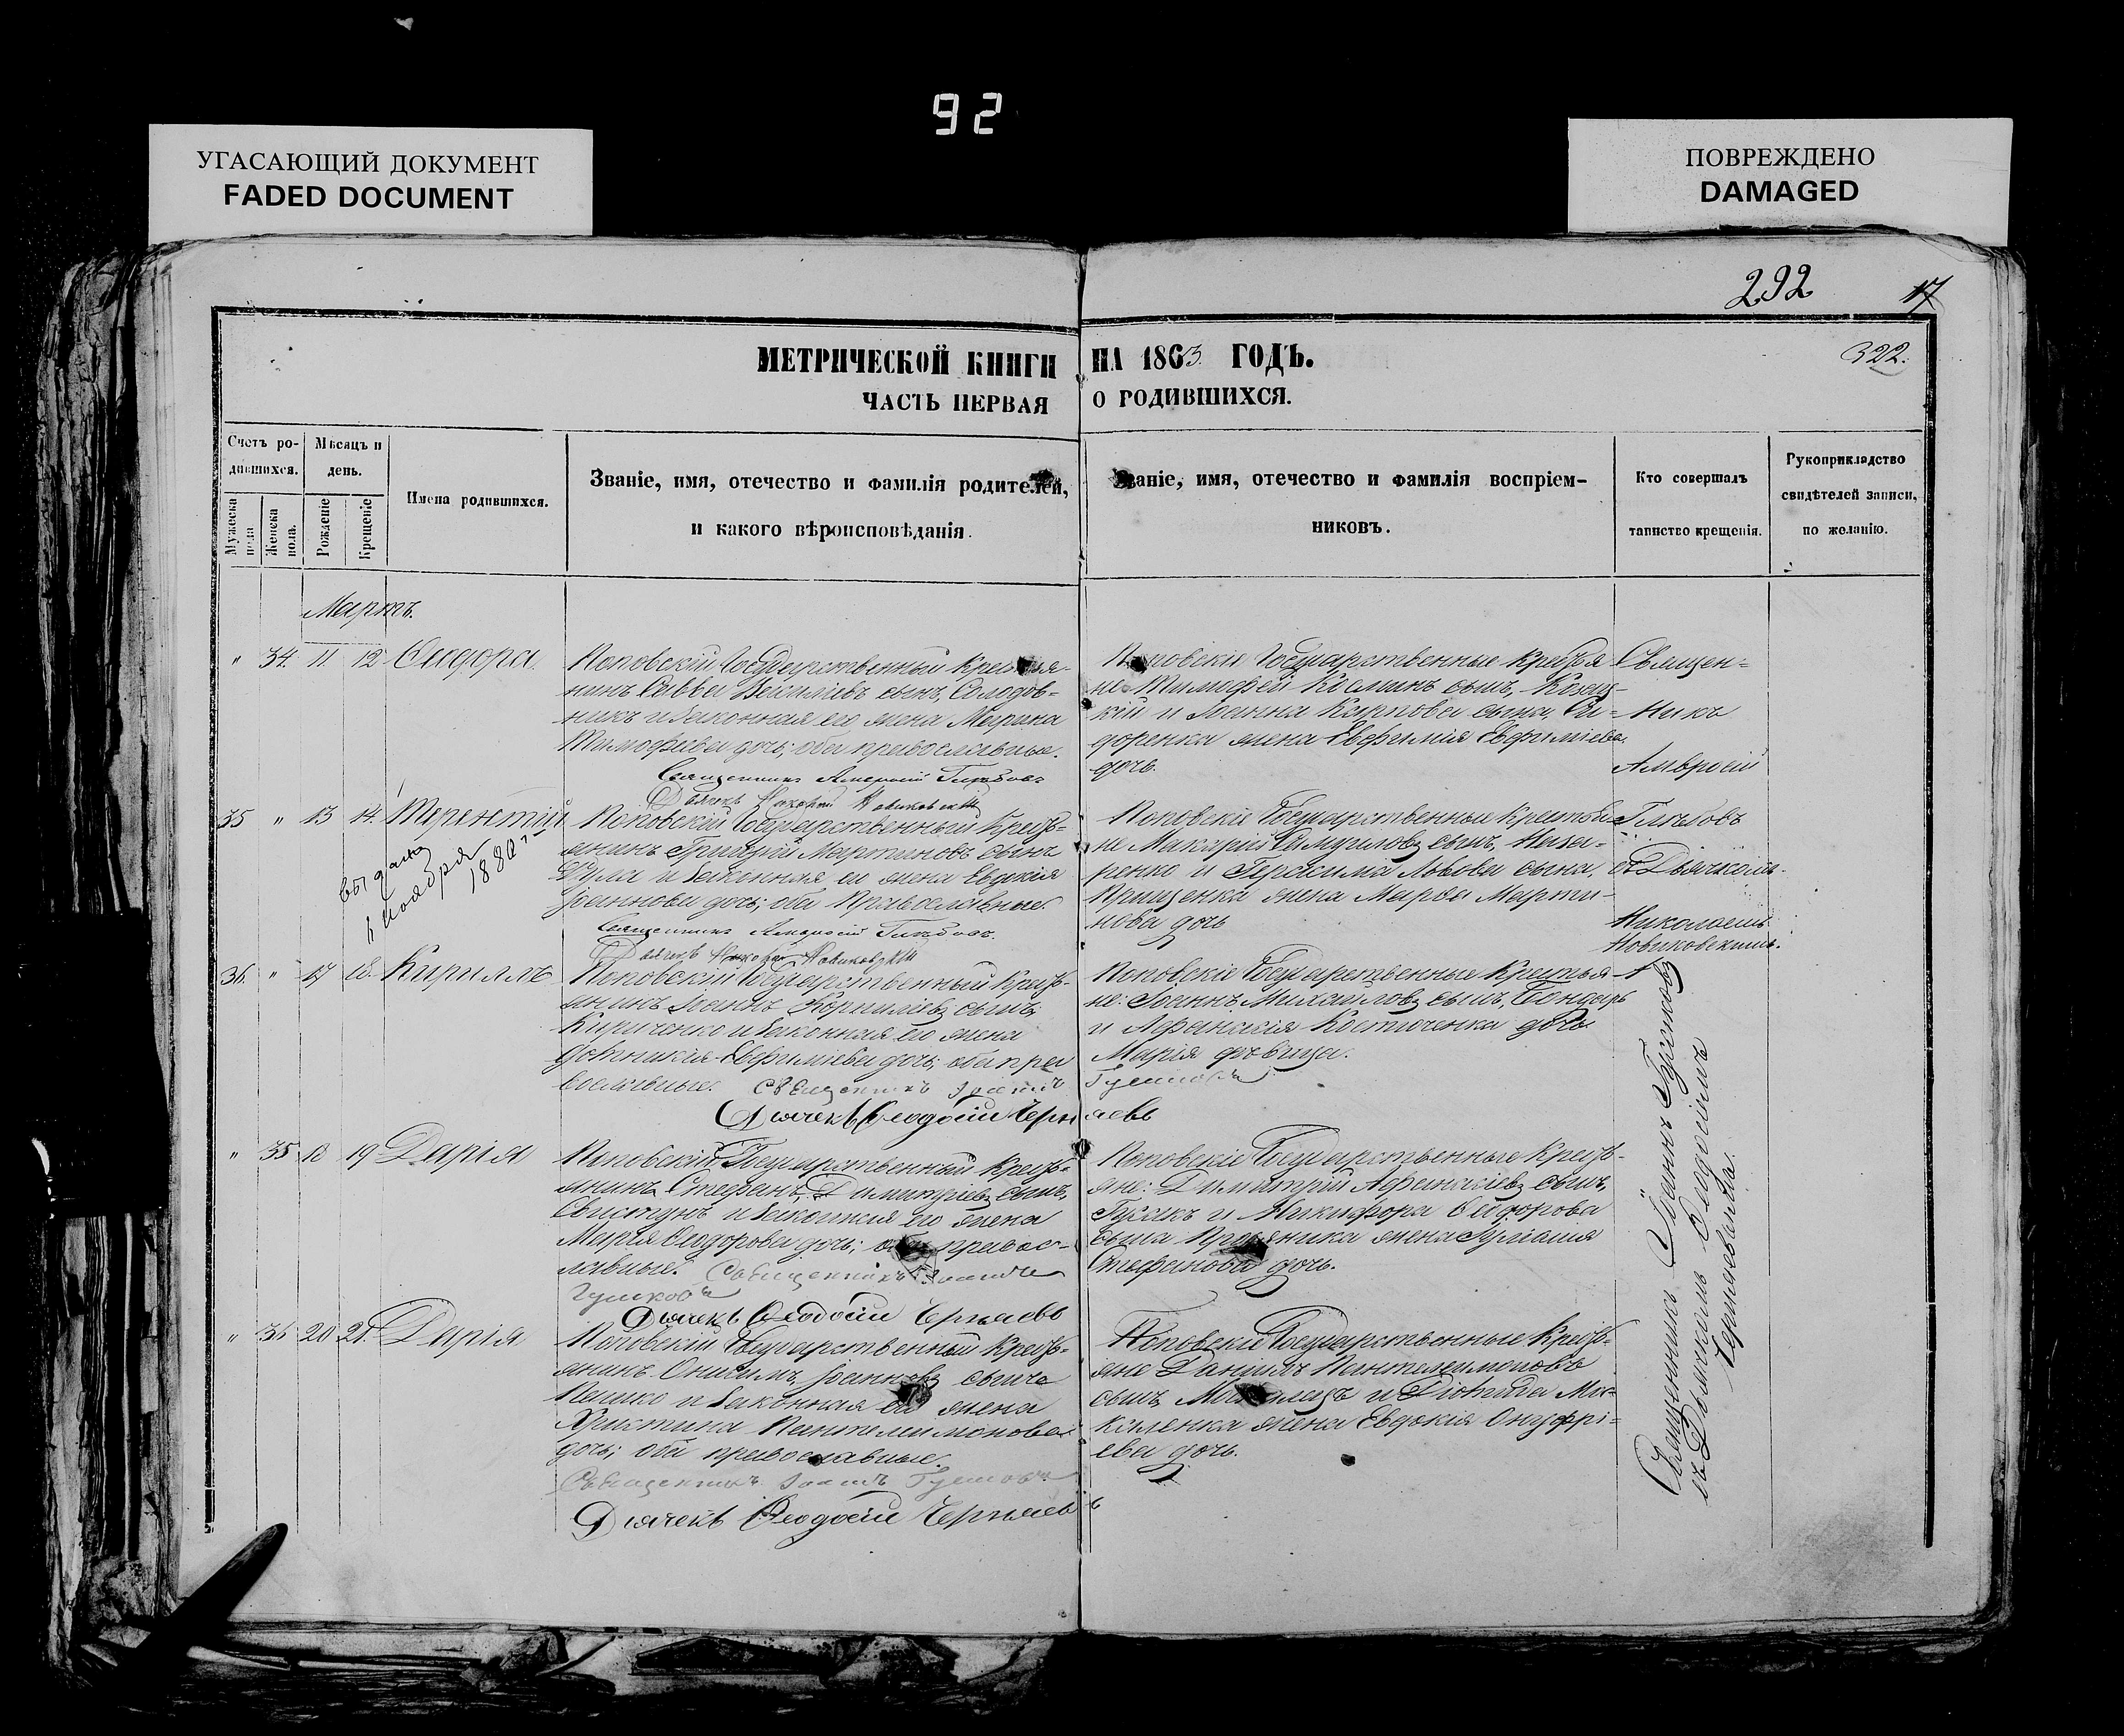 92
УГАСАЮЩИЙ ДОКУМЕНТ
FADED DOCUMENT
ПОВРЕЖДЕНО
DAMAGED
292
17
322.
МЕТРИЧЕСКОЙ КНИГИ НА 1863 ГОДЪ.
ЧАСТЬ ПЕРВАЯ О РОДИВШИХСЯ.
Счетъ ро-
дившихся.
Мужеска пола
Женска пола.
Мѣсяцъ и
день.
Рожденіе
Крещеніе
Имена родившихся.
Званіе, имя, отечество и фамилія родителей,
и какого вѣроисповѣданія.
Званіе, имя, отечество и фамилія воспріем-
никовъ.
Кто совершалъ
таинство крещенія.
Рукоприкладство
свидѣтелей записи,
по желанію.
Мартъ.
" 34. 11 12
Поповскій Государственный Крестья-
нинъ Савва сынъ, Солодов-
никъ и законная его жена Марина
Тимофѣева дочь; оба православные.
Священникъ Амвросій Глѣбовъ
Дьячекъ Новиковскій
Поповскіе Государственные Крестья-
не Тимофей Косминъ сынъ,
кій и Іоанна Карпова сына, Си-
доренка жена Евфимія Евфиміева
дочь.
Священ-
никъ
Амвросій
Глѣбовъ
съ Дьячкомъ
Николаемъ
Новиковскимъ.
35 " 13 14. Терентій
выдана
11 ноября
1880 г.
Поповскій Государственный Кресть-
янинъ Григорій Мартиновъ сынъ
и законная его жена Евдокія
Іоаннова дочь; оба Православные.
Священникъ Амвросій Глѣбовъ.
Дьячекъ Новиковскій
Поповскіе Государственные Крестья-
не Макарій Самуиловъ сынъ, Наза-
ренко и Герасима Львова сына,
жена Марѳа Марти-
нова дочь
36. " 17 18. Кириллъ
Поповскій Государственный Кресть-
янинъ Іоаннъ Корниліевъ сынъ
Кириченко и законная его жена
Домникія Евфиміева дочь; оба пра
вославные. Священникъ Іоаннъ Гулисовъ
Дьячекъ Ѳеодосій Черняевъ
Поповскіе Государственные Крестья-
не: Іоаннъ Михайловъ сынъ, Бондарь
и Афанасія Костюченка дочь
Марія дѣвица.
" 35 18 19 Дарія
Поповскій Государственный Кресть-
янинъ Стефанъ Димитріевъ сынъ,
Свистунъ и законная его жена
Марія Ѳеодорова дочь; оба правос-
лавные. Священникъ Іоаннъ
Дьячекъ Ѳеодосій Черняевъ
Поповскіе Государственные Кресть-
яне: Димитрій Афанасіевъ сынъ,
Гусакъ и Никифора Сидорова
сына жена Іуліанія
Стефанова дочь.
" 36 20 21. Дарія
Поповскій Государственный Кресть-
янинъ Онисимъ Іоанновъ сынъ
и законная его жена
Христина Пантелимонова
дочь; оба православные.
Священникъ Іоаннъ
Дьячекъ Ѳеодосій Черняевъ
Поповскіе Государственные Кресть-
яне Даніилъ Пантелеимоновъ
сынъ и Діомида Ми-
каленка жена Евдокія Онуфрі-
ева дочь.
Священникъ Іоаннъ
съ Дьячкомъ Ѳеодосіемъ